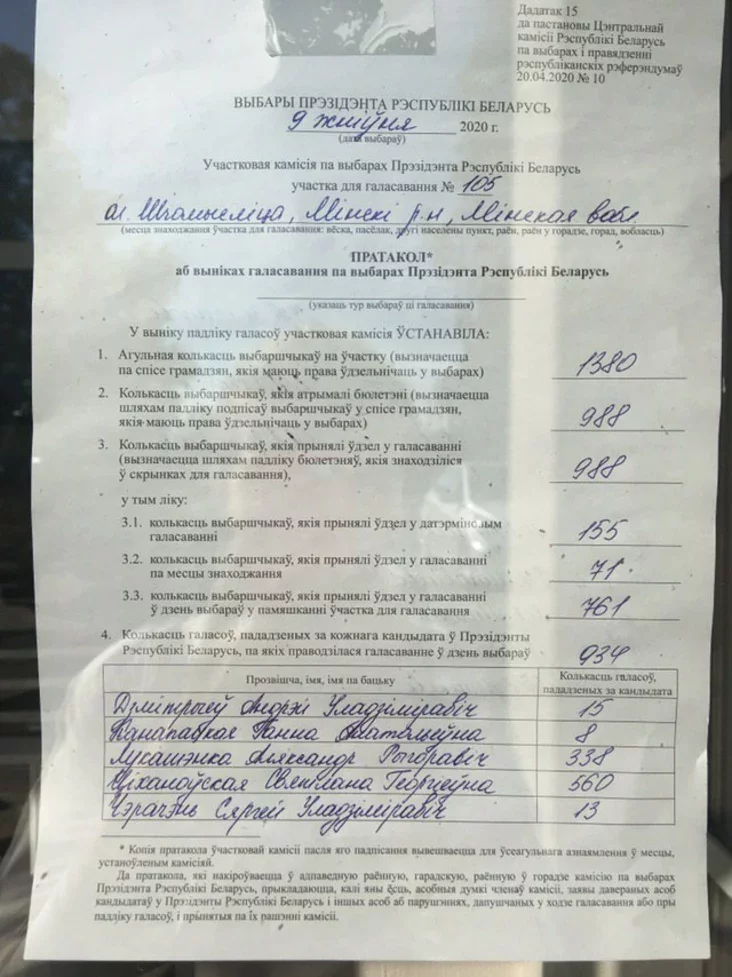 Дадатак 15
да пастановы Цэнтральнай
камісіі Рэспублікі Беларусь
па выбарах і правядзенні
рэспубліканскіх рэферэндумаў
20.04.2020 № 10
ВЫБАРЫ ПРЭЗІДЭНТА РЭСПУБЛІКІ БЕЛАРУСЬ
9 жніўня 2020 г.
(дата выбараў)
Участковая камісія па выбарах Прэзідэнта Рэспублікі Беларусь
участка для галасавання № 105
аг. Шчомысліца, Мінскі р-н, Мінская вобл.
(месца знаходжання ўчастка для галасавання: вёска, пасёлак, другі населены пункт, раён, раён у горадзе, горад, вобласць)
ПРАТАКОЛ*
аб выніках галасавання па выбарах Прэзідэнта Рэспублікі Беларусь
(указаць тур выбараў ці галасавання)
У выніку падліку галасоў участковая камісія ЎСТАНАВІЛА:
1. Агульная колькасць выбаршчыкаў на ўчастку (вызначаецца
па спісе грамадзян, якія маюць права ўдзельнічаць у выбарах) 1380
2. Колькасць выбаршчыкаў, якія атрымалі бюлетэні (вызначаецца
шляхам падліку подпісаў выбаршчыкаў у спісе грамадзян,
якія маюць права ўдзельнічаць у выбарах) 988
3. Колькасць выбаршчыкаў, якія прынялі ўдзел у галасаванні
(вызначаецца шляхам падліку бюлетэняў, якія знаходзіліся
ў скрынках для галасавання), 988
у тым ліку:
3.1. колькасць выбаршчыкаў, якія прынялі ўдзел у датэрміновым
галасаванні 155
3.2. колькасць выбаршчыкаў, якія прынялі ўдзел у галасаванні
па месцы знаходжання 71
3.3. колькасць выбаршчыкаў, якія прынялі ўдзел у галасаванні
ў дзень выбараў у памяшканні ўчастка для галасавання 761
4. Колькасць галасоў, пададзеных за кожнага кандыдата ў Прэзідэнты
Рэспублікі Беларусь, па якіх праводзілася галасаванне ў дзень выбараў 934
Прозвішча, імя, імя па бацьку Колькасць галасоў,
пададзеных за кандыдата
Дзмітрыеў Андрэй Уладзіміравіч 15
Канапацкая Ганна Анатольеўна 8
Лукашэнка Аляксандр Рыгоравіч 338
Ціханоўская Святлана Георгіеўна 560
Чэрачэнь Сяргей Уладзіміравіч 13
* Копія пратакола ўчастковай камісіі пасля яго падпісання вывешваецца для ўсеагульнага азнаямлення ў месцы,
устаноўленым камісіяй.
Да пратакола, які накіроўваецца ў адпаведную раённую, гарадскую, раённую ў горадзе камісію па выбарах
Прэзідэнта Рэспублікі Беларусь, прыкладаюцца, калі яны ёсць, асобныя думкі членаў камісіі, заявы давераных асоб
кандыдатаў у Прэзідэнты Рэспублікі Беларусь і іншых асоб аб парушэннях, дапушчаных у ходзе галасавання або пры
падліку галасоў, і прынятыя па іх рашэнні камісіі.